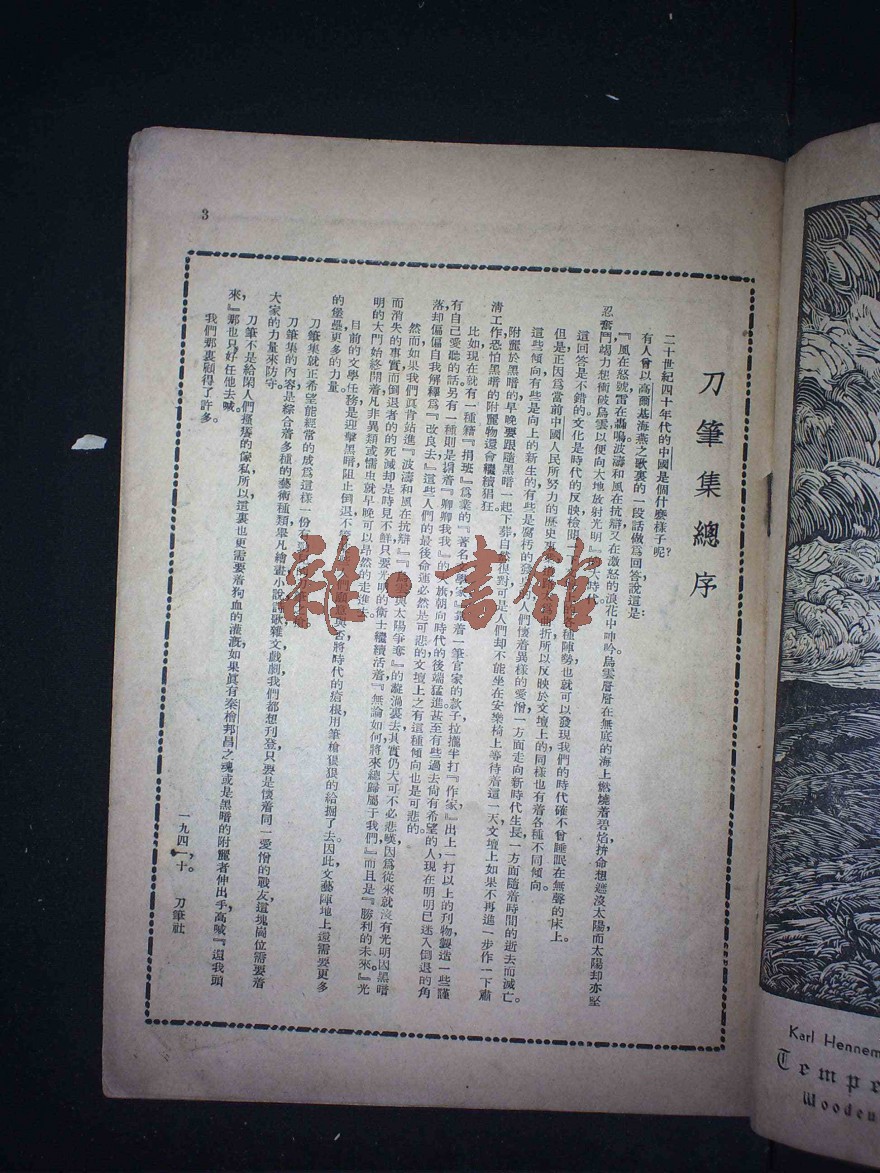 3
刀筆集總序
二十世紀四十年代的中國是個什麼樣子呢?
有人曾以高爾基海燕之歌裏的一段話做為回答說這是:
『風在怒號雷在轟鳴波濤和風在抗辯又在激怒的浪花中呻吟烏雲層層在無底的海上燃燒着碧焰拚命想遮沒太陽而太陽却亦堅
忍奮鬥竭力想衝破烏雲以便向大地放射光明』的大時代。
這回答是不錯的文化是時代的反映檢閱一下
種陣勢也就可以發現我們的時代確不曾睡眠在無聲的床上。
但是正因為當前中國人民所努力的歷史事
曲折所以反映於文壇上的同樣也有着各種不同傾向。
這些傾向有些是向上的新生的有些是腐朽的發
人們懷着異樣的愛憎一方面走向新時代生長一方面隨着時間的逝去而滅亡。
附麗於黑暗的早晚要跟隨黑暗一起下葬自
很對可是人們却不能坐在安樂椅上等待着這一天文壇上如果不再進一步作一下肅
清工作恐怕黑暗的附麗物還會繼續猖狂。
比如現在就有一種藉『捐班』為業的『著名
學家』
着一筆官家的款子拉攏半打『作家』出上一打以上的刊物製造一些謹
有自己愛聽的話另有一種則是揭着『卿卿我我』的
旗朝向時代的後端猛進甚至有些過去尚有希望的人現在明明已迷入倒退的角
落却偏偏自我解釋為『改良去』這些人們的最後命運必然是可悲的文壇上之有這種傾向也是可悲的。
然而如果我們真肯站進『波濤和風在抗辯』『烏雲與太陽爭奪』的漩渦裏去其實仍大可不必悲嘆因為從來就沒有光明因黑暗
而消失的事實而倒退者的的死滅却是時見不鮮只要光明的衛士繼續活着『無論如何將來總歸屬于我們』而且是『勝利的未來』光
明的大門始終開着凡非異類或懦虫就早晚可以昂然的走進去。
目前的文學任務是迎擊黑暗阻止倒退不
們願意與否將時代的瘡根用筆槍狠狠的給掘了去因此文藝陣地上還需要更多
的堡壘更多的力量。
刀筆集就正希望能經常的成為這樣一份有
刀筆集的內容是綜合着多種的藝術種類舉凡繪畫小說詩歌雜文戲劇我們都想刊登只要是懷着同一愛憎的戰友這塊崗位需要着
大家的力量來防守。
刀筆不是給閑人們搔癢的傢私所以這裏也更需要着狗血的灌漑如果眞有秦檜邦昌之魂或是黑暗的附麗者伸出乎高喊『還我頭
來』那也只好任他去喊。
我們那裏顧得了許多。
一九四一,十。 刀筆社
龍·書館
Karl Hennem
Tempe
Wooden